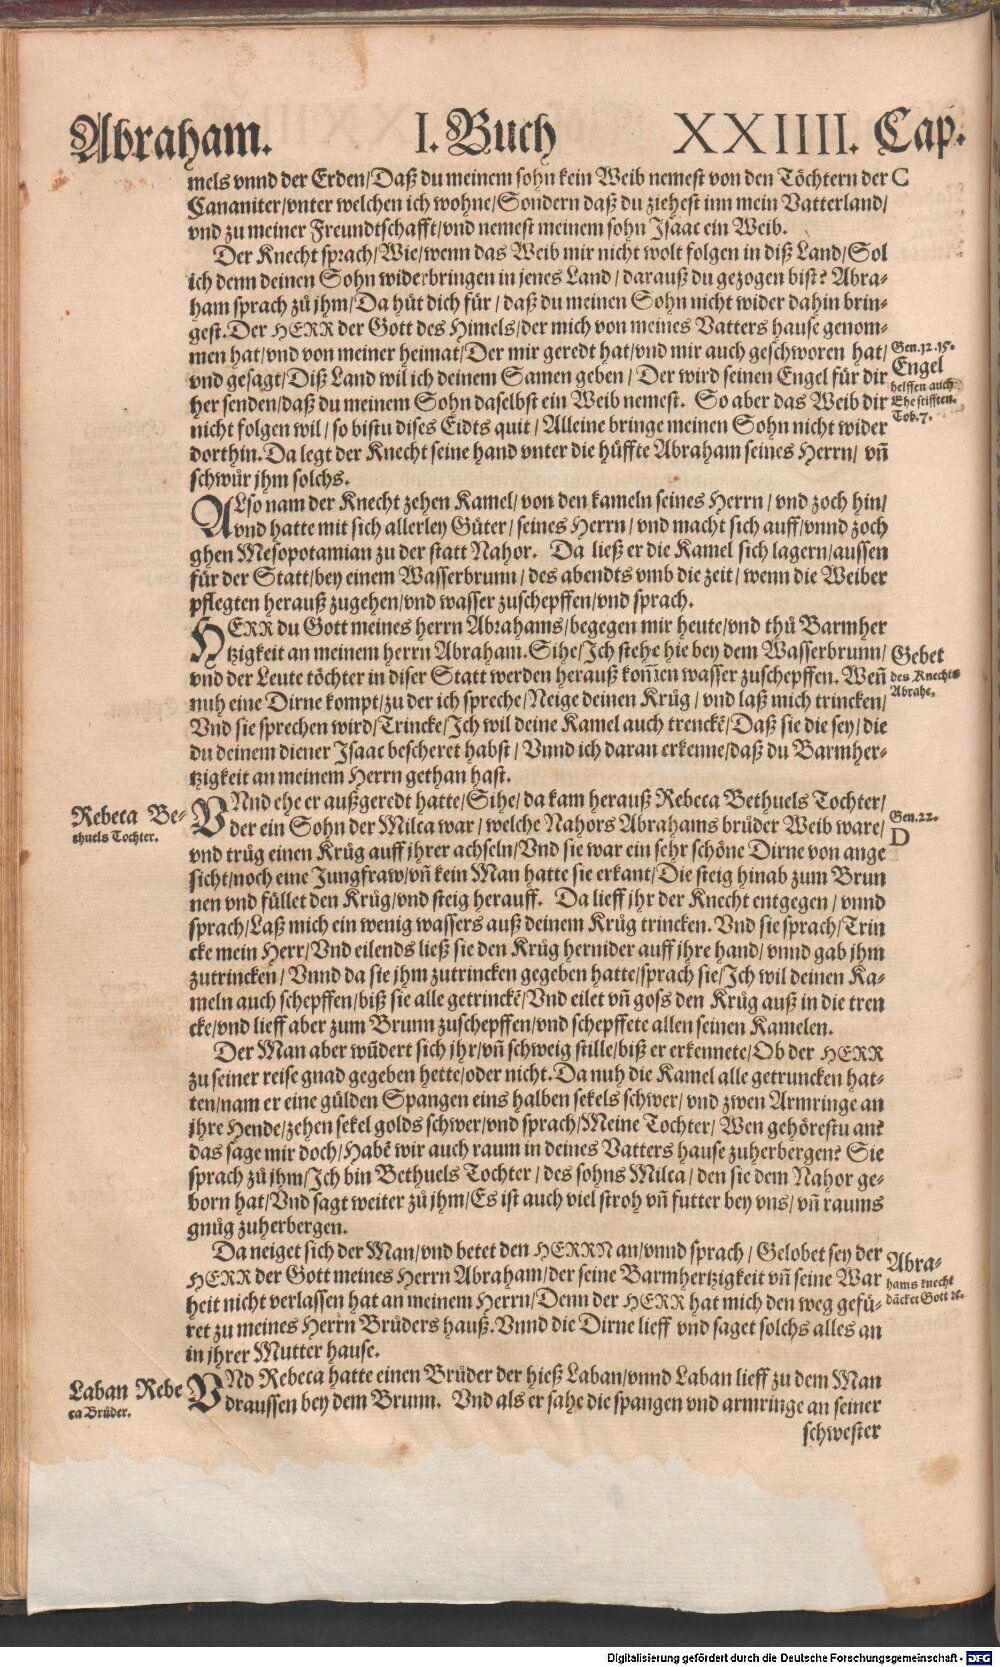 Abraham. I. Buch XXIIII. Cap.
mels vnnd der Erden/Daß du meinem sohn kein Weib nemest von den Töchtern der C
Cananiter/vnter welchen ich wohne/Sondern daß du ziehest inn mein Vatterland/
vnd zu meiner Freundtschafft/vnd nemest meinem sohn Isaac ein Weib.
Der Knecht sprach/Wie/wenn das Weib mir nicht wolt folgen in diß Land/Sol
ich denn deinen Sohn widerbringen in jenes Land/darauß du gezogen bist? Abra-
ham sprach zů jhm/Da hüt dich für/daß du meinen Sohn nicht wider dahin brin-
gest. Der HERR der Gott des Himels/der mich von meines Vatters hause genom-
men hat/vnd von meiner heimat/Der mir geredt hat/vnd mir auch geschworen hat/
vnd gesagt/Diß Land wil ich deinem Samen geben/Der wird seinen Engel für dir
her senden/daß du meinem Sohn daselbst ein Weib nemest. So aber das Weib dir
nicht folgen wil/so bistu dises Eidts quit/Alleine bringe meinen Sohn nicht wider
dorthin. Da legt der Knecht seine hand vnter die hüffte Abraham seines Herrn/vñ
schwůr jhm solchs.
Gen.12.15.
Engel
helffen auch
Ehe stifften.
Tob.7.
ALso nam der Knecht zehen Kamel/von den kameln seines Herrn/vnd zoch hin/
vnd hatte mit sich allerley Güter/seines Herrn/vnd macht sich auff/vnnd zoch
ghen Mesopotamian zu der statt Nahor. Da ließ er die Kamel sich lagern/aussen
für der Statt/bey einem Wasserbrunn/des abendts vmb die zeit/wenn die Weiber
pflegten herauß zugehen/vnd wasser zuschepffen/vnd sprach.
HERR du Gott meines herrn Abrahams/begegen mir heute/vnd thů Barmher
tzigkeit an meinem herrn Abraham. Sihe/Ich stehe hie bey dem Wasserbrunn/
vnd der Leute töchter in diser Statt werden herauß kom̃en wasser zuschepffen. Weñ
nuh eine Dirne kompt/zu der ich spreche/Neige deinen Krůg/vnd laß mich trincken/
Vnd sie sprechen wird/Trincke/Ich wil deine Kamel auch trenckẽ/Daß sie die sey/die
du deinem diener Isaac bescheret habst/Vnnd ich daran erkenne/daß du Barmher-
tzigkeit an meinem Herrn gethan hast.
Gebet
des Knechts
Abrahe.
Rebeca Be-
thuels Tochter.
VNnd ehe er außgeredt hatte/Sihe/da kam herauß Rebeca Bethuels Tochter/
der ein Sohn der Milca war/welche Nahors Abrahams brůder Weib ware/
vnd trůg einen Krůg auff jhrer achseln/Vnd sie war ein sehr schöne Dirne von ange
sicht/noch eine Jungfraw/vñ kein Man hatte sie erkant/Die steig hinab zum Brun
nen vnd füllet den Krůg/vnd steig herauff. Da lieff jhr der Knecht entgegen/vnnd
sprach/Laß mich ein wenig wassers auß deinem Krůg trincken. Vnd sie sprach/Trin
cke mein Herr/Vnd eilends ließ sie den Krůg hernider auff jhre hand/vnnd gab jhm
zutrincken/Vnnd da sie jhm zutrincken gegeben hatte/sprach sie/Ich wil deinen Ka-
meln auch schepffen/biß sie alle getrinckẽ/Vnd eilet vñ goss den Krůg auß in die tren
cke/vnd lieff aber zum Brunn zuschepffen/vnd schepffete allen seinen Kamelen.
Gen.22.
D
Der Man aber wũdert sich jhr/vñ schweig stille/biß er erkennete/Ob der HERR
zu seiner reise gnad gegeben hette/oder nicht. Da nuh die Kamel alle getruncken hat-
ten/nam er eine gülden Spangen eins halben sekels schwer/vnd zwen Armringe an
jhre Hende/zehen sekel golds schwer/vnd sprach/Meine Tochter/Wen gehörestu an?
das sage mir doch/Habẽ wir auch raum in deines Vatters hause zuherbergen? Sie
sprach zů jhm/Ich bin Bethuels Tochter/des sohns Milca/den sie dem Nahor ge-
born hat/Vnd sagt weiter zů jhm/Es ist auch viel stroh vñ futter bey vns/vñ raums
gnůg zuherbergen.
Da neiget sich der Man/vnd betet den HERRN an/vnnd sprach/Gelobet sey der
HERR der Gott meines Herrn Abraham/der seine Barmhertzigkeit vñ seine War
heit nicht verlassen hat an meinem Herrn/Denn der HERR hat mich den weg gefü-
ret zu meines Herrn Brůders hauß. Vnnd die Dirne lieff vnd saget solchs alles an
in jhrer Mutter hause.
Abra-
hams knecht
dãcket Gott ꝛc.
Laban Rebe
ca Brůder.
VNd Rebeca hatte einen Brůder der hieß Laban/vnnd Laban lieff zu dem Man
draussen bey dem Brunn. Vnd als er sahe die spangen vnd armringe an seiner
schwester
Digitalisierung gefördert durch die Deutsche Forschungsgemeinschaft - DFG